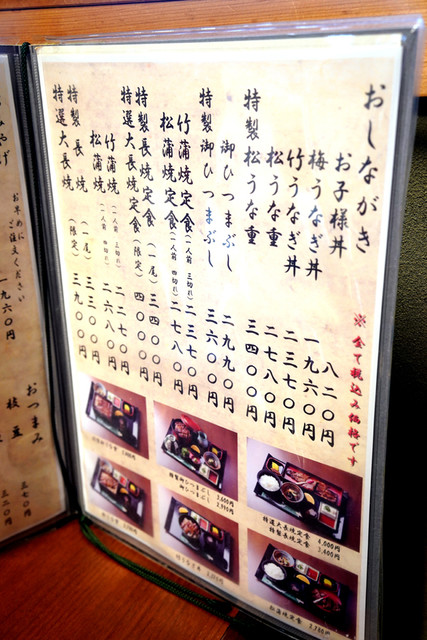 おしながき
※全て税込み価格です
お子様丼 八二〇円
梅うなぎ丼 一九六〇円
竹うなぎ丼 二三七〇円
松うな重 二七八〇円
特製松うな重 三四〇〇円
御ひつまぶし 二九九〇円
特製御ひつまぶし 三六〇〇円
竹蒲焼定食(一人前 三切れ) 二三七〇円
松蒲焼定食(一人前 四切れ) 二七八〇円
特製長焼定食(一尾) 三四〇〇円
特選大長焼定食(限定) 四〇〇〇円
竹蒲焼(一人前 三切れ) 二二七〇円
松蒲焼(一人前 四切れ) 二六八〇円
特製長焼(一尾) 三三〇〇円
特選大長焼(限定) 三九〇〇円
特製御ひつまぶし 3,600円
御ひつまぶし 2,990円
特選大長焼定食 4,000円
特製長焼定食 3,400円
松蒲焼定食 2,780円
お早めに
ご注文ください
一九六〇円
おつまみ
枝豆 三七〇円